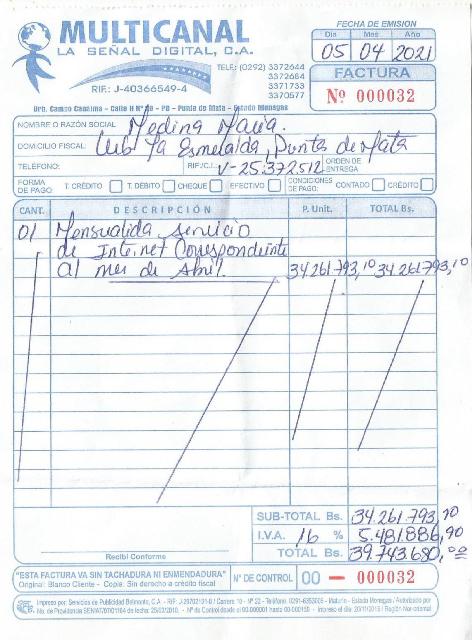 MULTICANAL
LA SEÑAL DIGITAL, C.A.
RIF.: J-40366549-4
TELF.: (0292) 3372644
3372684
3371733
3370577
FECHA DE EMISION
Dia Mes Año
05 04 2021
FACTURA
Nº 000032
Urb. Campo Carolina - Calle H Nº - PB - Punta de Mata - Estado Monagas
NOMBRE O RAZÓN SOCIAL Medina Maria.
DOMICILIO FISCAL: Urb La Esmeralda, Punta de Mata
TELÉFONO: RIF./C.I.: V-25.372.512 ORDEN DE ENTREGA
FORMA DE PAGO: T. CRÉDITO T. DÉBITO CHEQUE EFECTIVO CONDICIONES DE PAGO: CONTADO CRÉDITO
CANT. DESCRIPCIÓN P. Unit. TOTAL Bs.
01 Mensualida servicio
de Internet Correspondiente
al mes de Abril. 34.261.793,10 34.261.793,10
SUB-TOTAL Bs. 34.261.793,10
I.V.A. 16 % 5.481.886,90
TOTAL Bs. 39.743.680,00
Recibi Conforme
"ESTA FACTURA VA SIN TACHADURA NI ENMENDADURA"
Original: Blanco Cliente - Copia: Sin derecho a crédito fiscal
N° DE CONTROL 00 - 000032
Impreso por: Servicios de Publicidad Belmonto, C.A. - RIF: J-29702101-0 / Carrera 10 - N° 22 - Telefono: 0291-6353005 - Maturin - Estado Monagas / Autorizado por
No. de Providencia SENIAT/07/01164 de fecha 25/03/2010. - N° de Control desde el 00-000001 hasta 00-000150 - Impreso el dia: 23/11/2018 / Región Nor-oriental